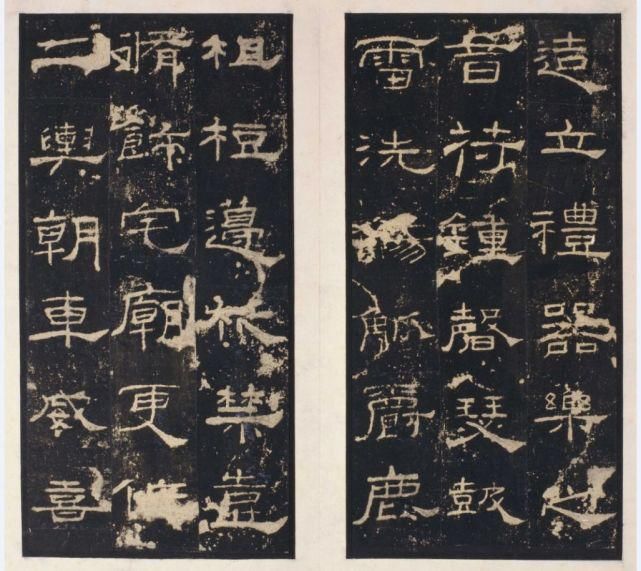 造立禮器樂之
音苻鍾磬瑟鼓
雷洗觴觚爵鹿
柤梪籩柉禁壺
脩飾宅廟更作
二輿朝車威喜